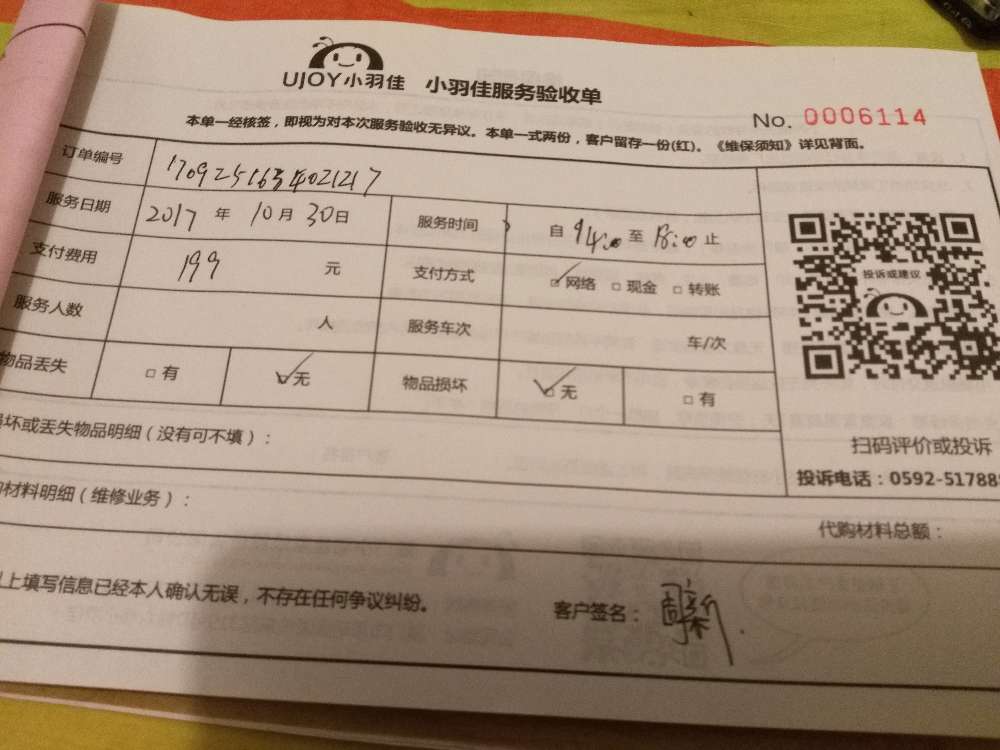 UJOY小羽佳 小羽佳服务验收单
No. 0006114
本单一经核签，即视为对本次服务验收无异议。本单一式两份，客户留存一份(红)。《维保须知》详见背面。
订单编号 1709251634021217
服务日期 2017 年 10 月 30 日 服务时间 自 14:00 至 18:00 止
支付费用 199 元 支付方式 网络 现金 转账
服务人数 人 服务车次 车/次
物品丢失 有 无 物品损坏 无 有
投诉或建议
扫码评价或投诉
投诉电话：0592-517888
损坏或丢失物品明细（没有可不填）：
材料明细（维修业务）：
代购材料总额：
以上填写信息已经本人确认无误，不存在任何争议纠纷。
客户签名：